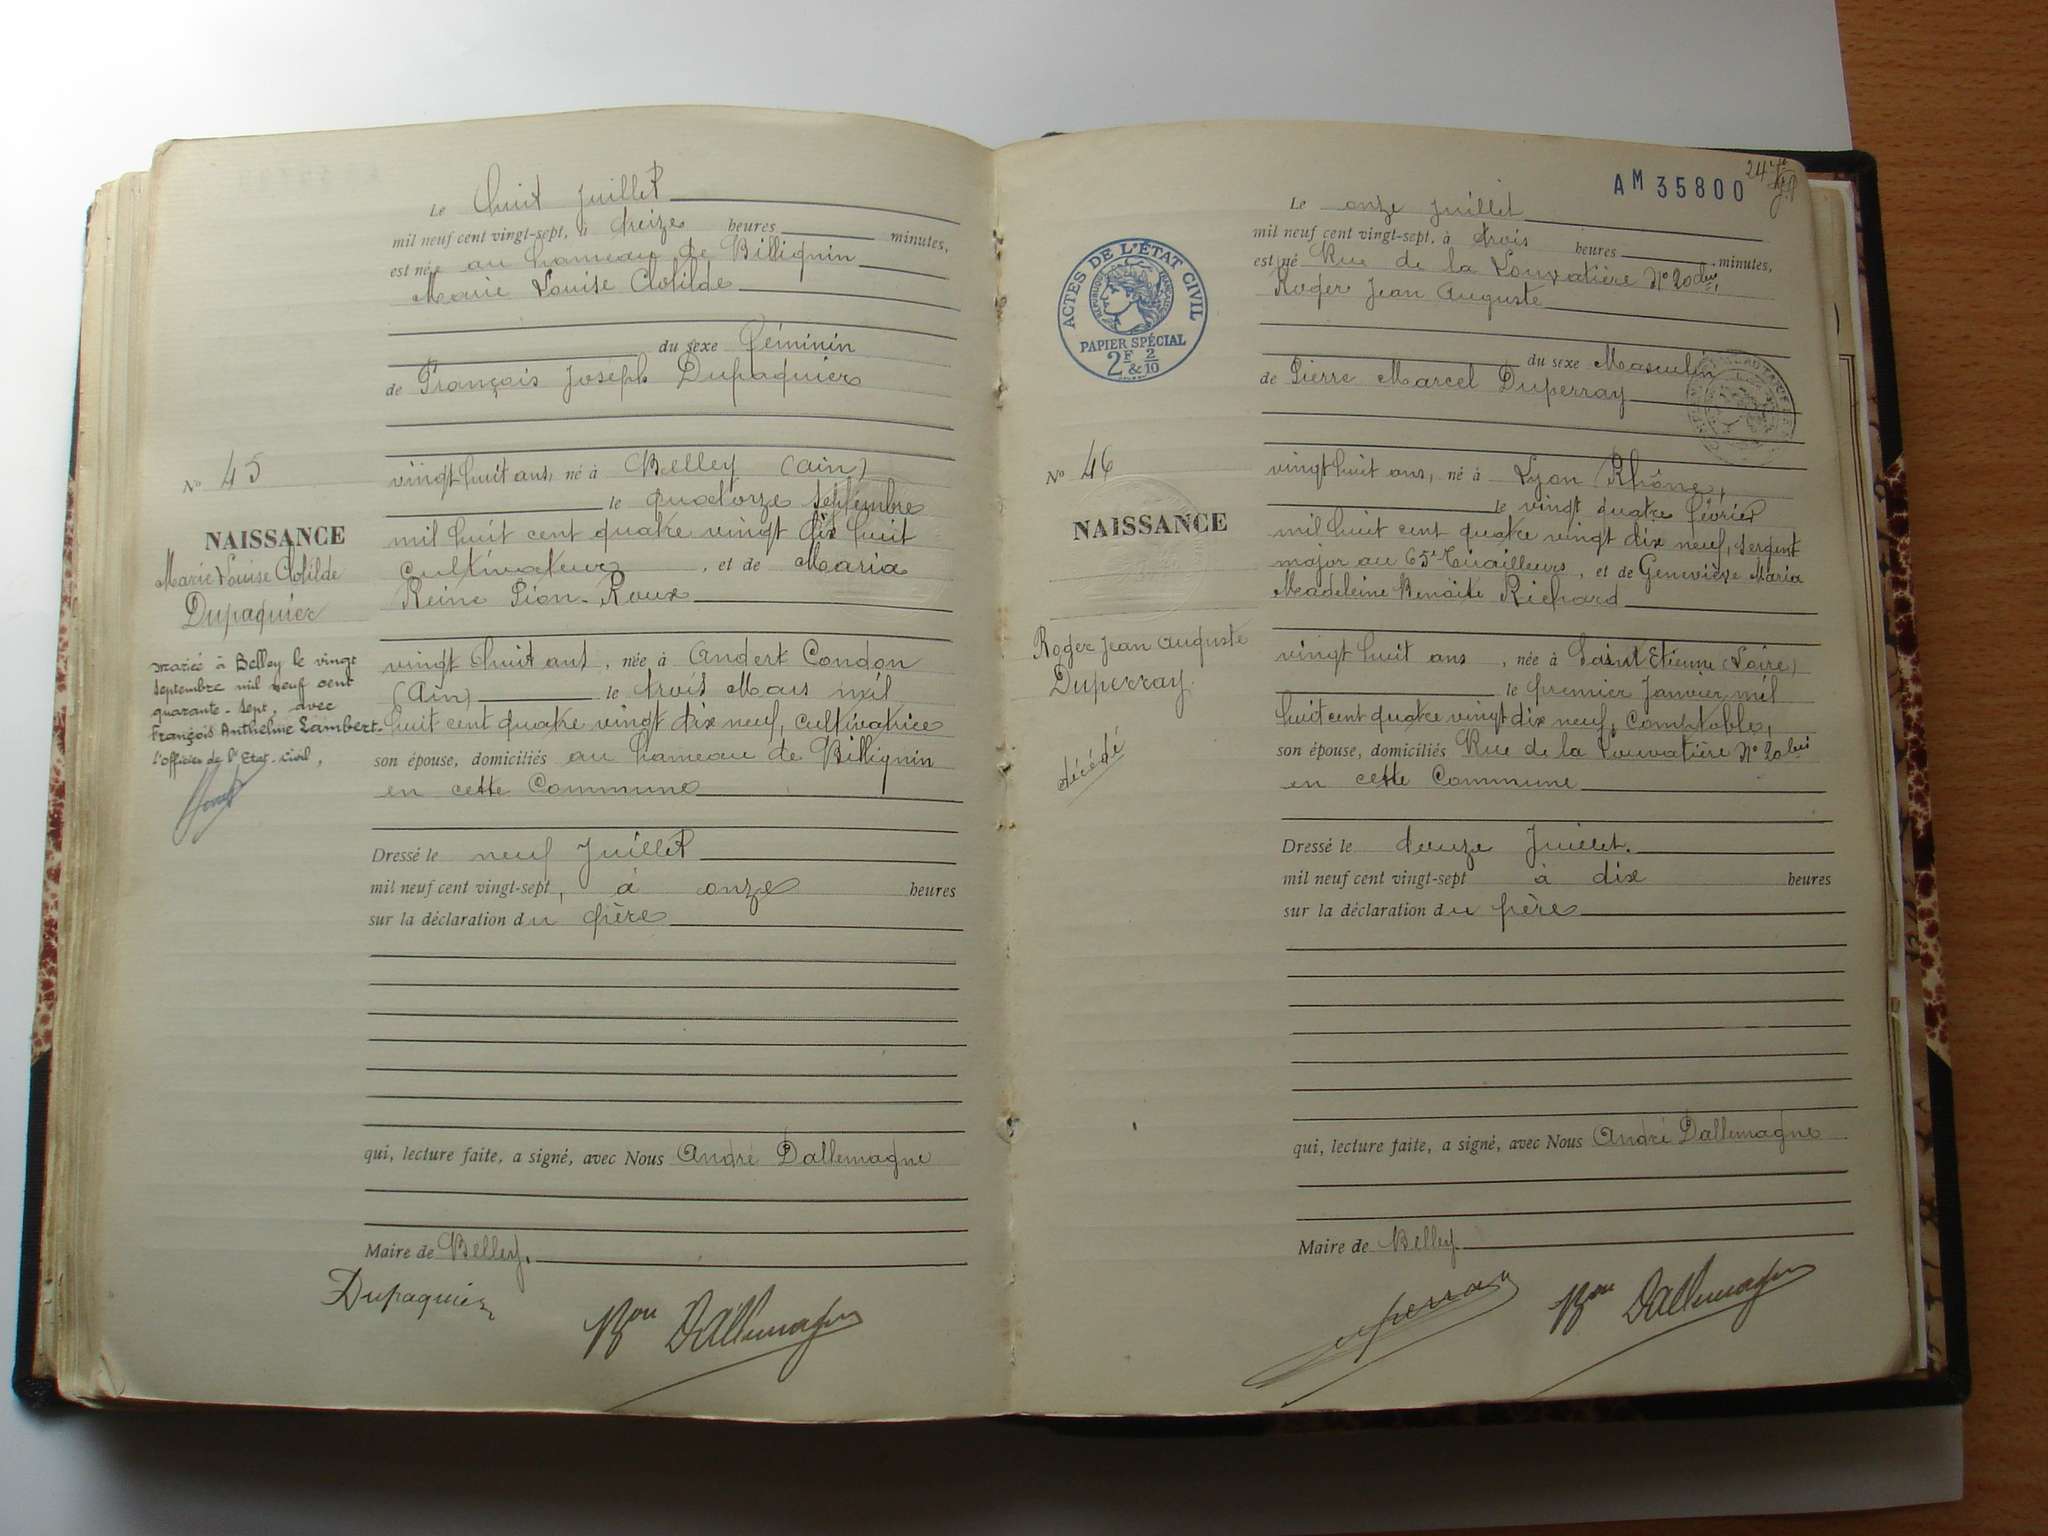 Le huit Juillet
mil neuf cent vingt-sept, à treize heures minutes,
est née au hameau de Billignin
Marie Louise Clotilde
du sexe féminin
de François Joseph Dupaquier
N° 45
vingt huit ans, né à Belley (Ain)
le quatorze septembre
NAISSANCE
mil huit cent quatre vingt dix huit
Marie Louise Clotilde
Dupaquier
cultivateur, et de Maria
Reine Pion-Roux
mariée à Belley le vingt
septembre mil neuf cent
quarante-sept, avec
François Anthelme Lambert.
l'Officier de l'Etat-civil,
vingt huit ans, née à Andert Condon
(Ain) le trois Mars mil
huit cent quatre vingt dix neuf, cultivatrice
son épouse, domiciliés au hameau de Billignin
en cette Commune
Dressé le neuf Juillet
mil neuf cent vingt-sept, à onze heures
sur la déclaration du père
qui, lecture faite, a signé, avec Nous André Dallemagne
Maire de Belley.
Dupaquier
Bon Dallemagne
AM 35800
24
Le onze Juillet
mil neuf cent vingt-sept, à trois heures minutes,
est né Rue de la Louvatière N° 20
Roger Jean Auguste
ACTES DE L'ÉTAT CIVIL
RÉPUBLIQUE FRANÇAISE
PAPIER SPÉCIAL
2F & 2/10
du sexe Masculin
de Pierre Marcel Duperray
N° 46
vingt huit ans, né à Lyon Rhône,
le vingt quatre février
NAISSANCE
mil huit cent quatre vingt dix neuf, sergent
major au 65e Tirailleurs, et de Geneviève Maria
Madeleine Benoite Richard
Roger Jean Auguste
Duperray.
décédé
vingt huit ans, née à Saint Etienne (Loire)
le premier Janvier mil
huit cent quatre vingt dix neuf, comptable,
son épouse, domiciliés Rue de la Louvatière N° 20 bis
en cette Commune
Dressé le douze Juillet.
mil neuf cent vingt-sept à dix heures
sur la déclaration du père
qui, lecture faite, a signé, avec Nous André Dallemagne
Maire de Belley
Bon Dallemagne